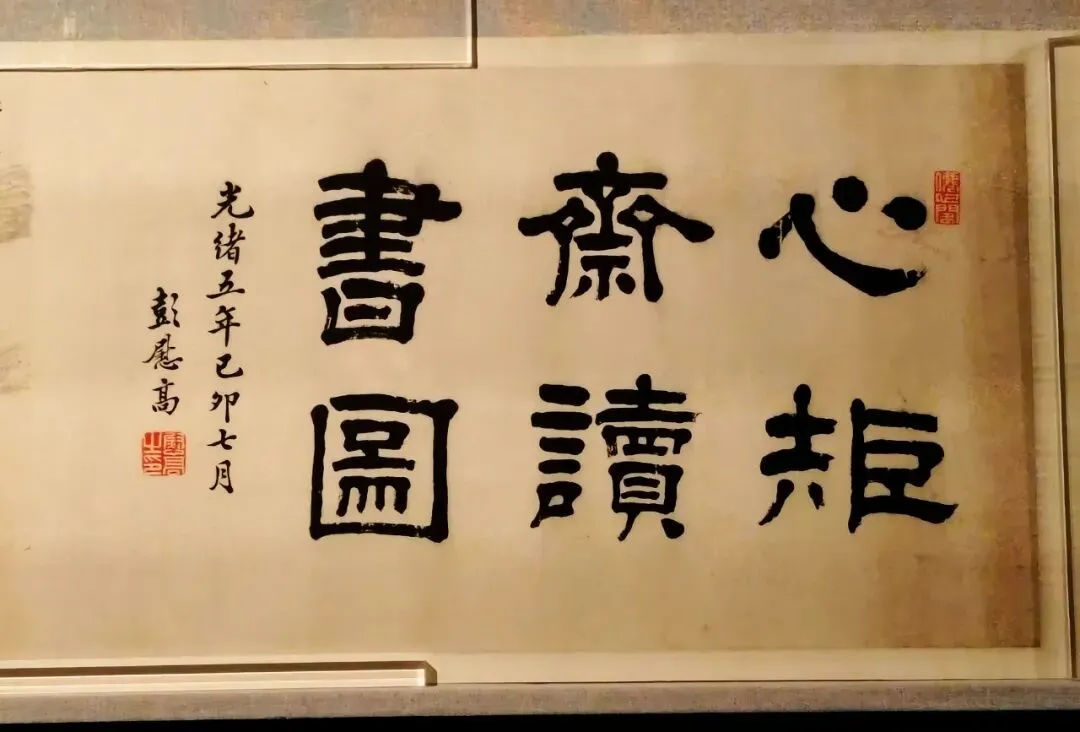 心矩
齋讀
書圖
光緒五年己卯七月
彭慰高